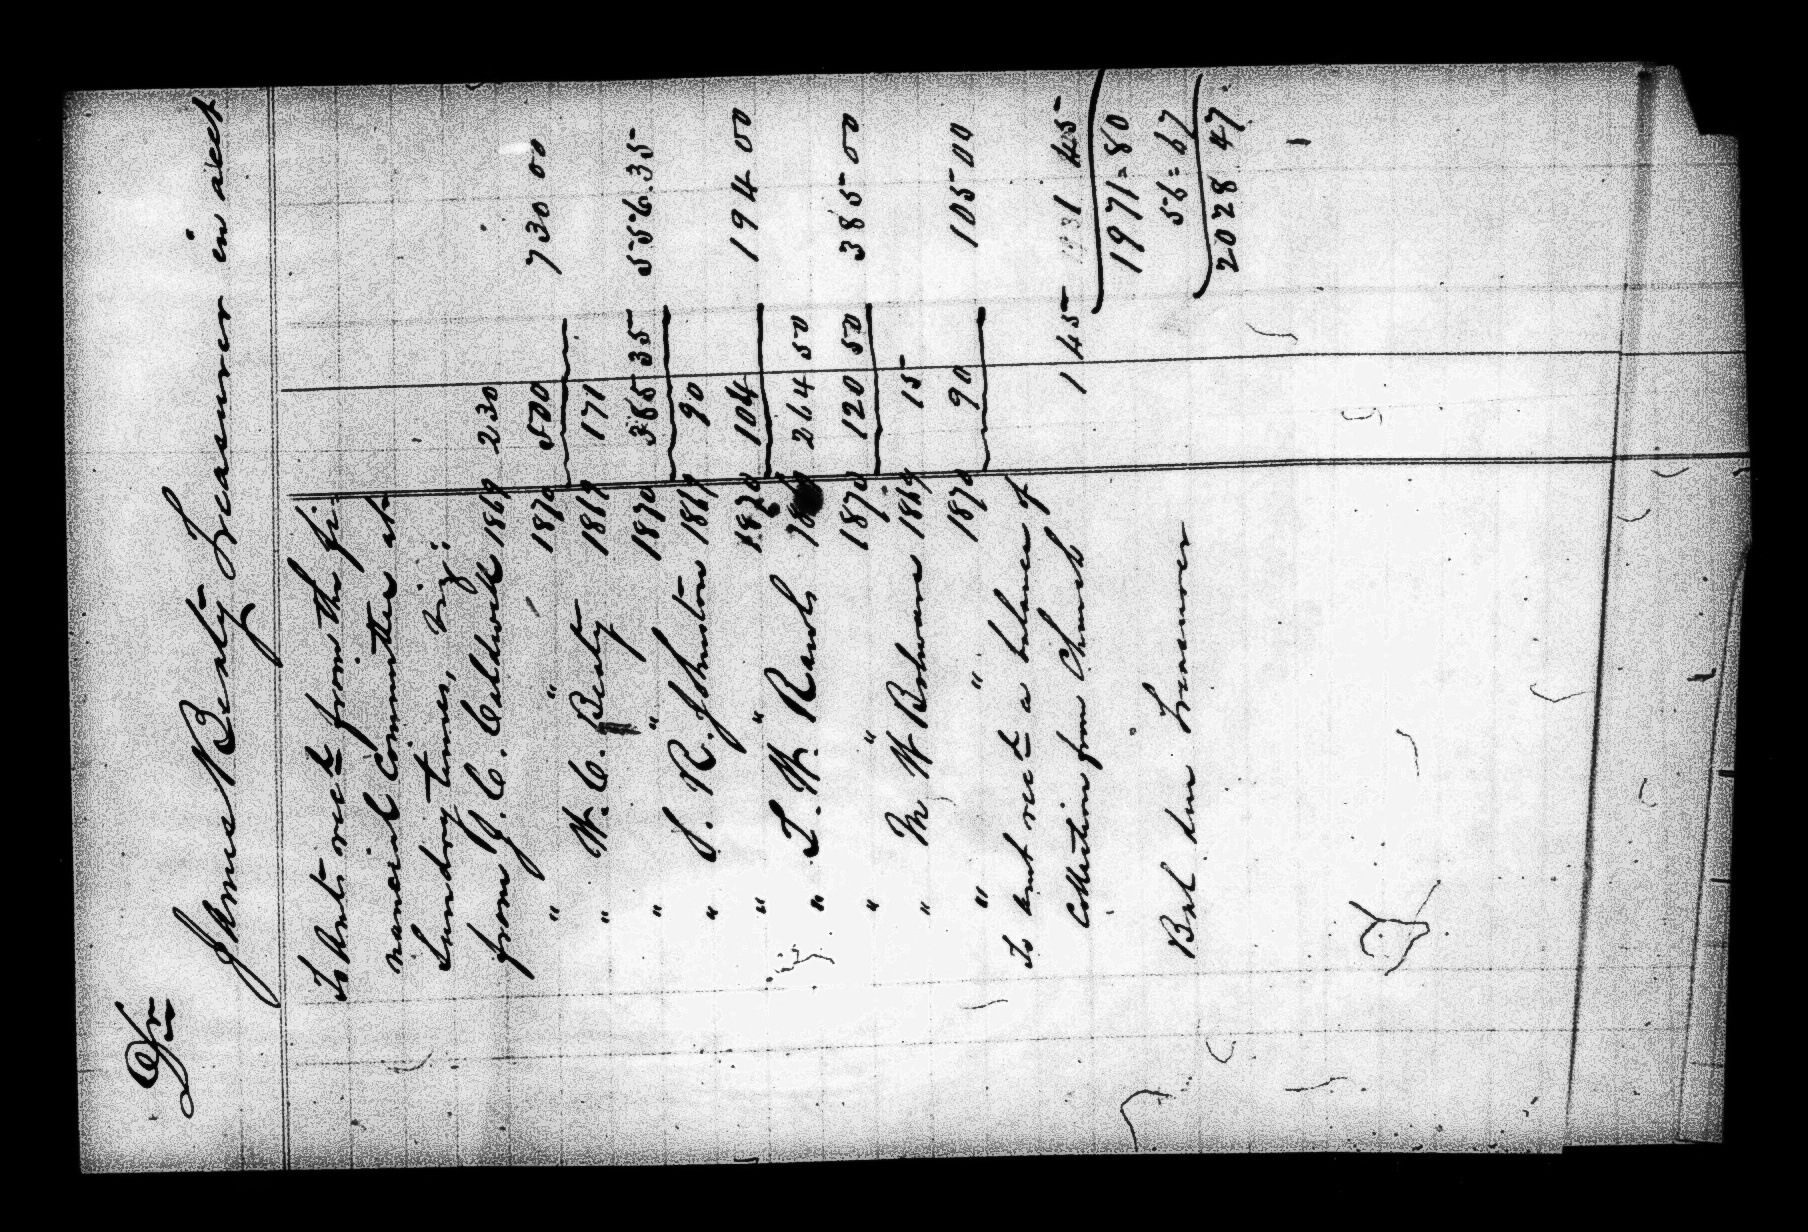 Dr
James Beaty Treasurer in acct
To Amt. recd from the fi-
nancial Committee at
Sundry times, viz:
from J. C. Caldwell 1869 230
" " 1870 500 730 00
" W. C. Beaty 1869 171
" " 1870 385 35 556.35
" J. R. Johnston 1869 90
" " 1870 104 194 00
" L. W. Rawls 1869 264 50
" " 1870 120 50 385 00
" M W 1869 15
" " 1870 90 105 00
To amt recd a balance of
Collection from Church 1 45 1 45
1971=80
Bal due Treasurer 56=67
2028 47